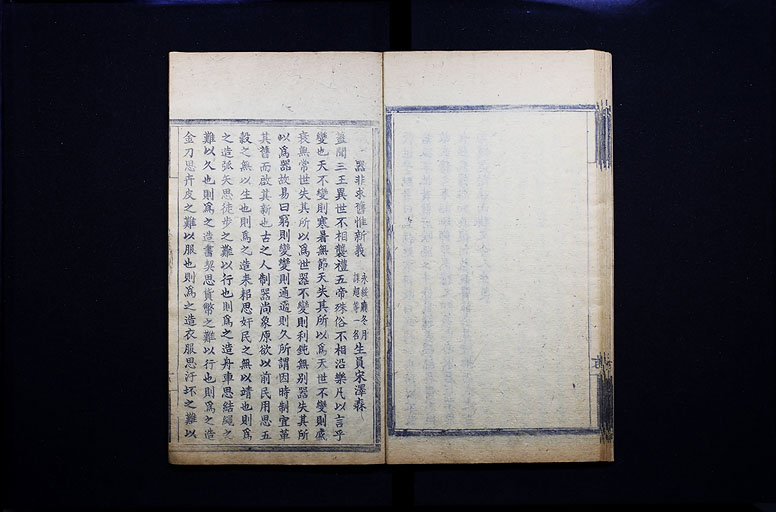 器非求舊惟新義 永綏廳冬月課超等一名 生員宋澤森
蓋聞三王異世不相襲禮五帝殊俗不相沿樂凡以言乎
變也天不變則寒暑無節天失其所以為天世不變則盛
衰無常世失其所以為世器不變則利鈍無别器失其所
以為器故易曰窮則變變則通通則久所謂因時制宜革
其舊而啟其新也古之人制器尚象原欲以前民用思五
穀之無以生也則為之造耒耜思奸民之無以靖也則為
之造弧矢思徒步之難以行也則為之造舟車思結繩之
難以久也則為之造書契思貨幣之難以行也則為之造
金刀思卉皮之難以服也則為之造衣服思汙坏之難以